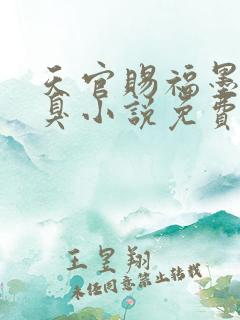 天官赐福墨
真小说免费
王皇翔
未经同意禁止转载